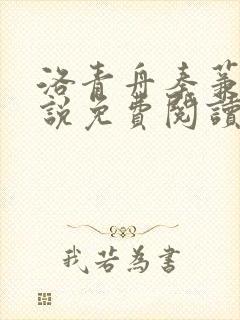 洛青舟秦蒹
說免費閱讀
我若為書